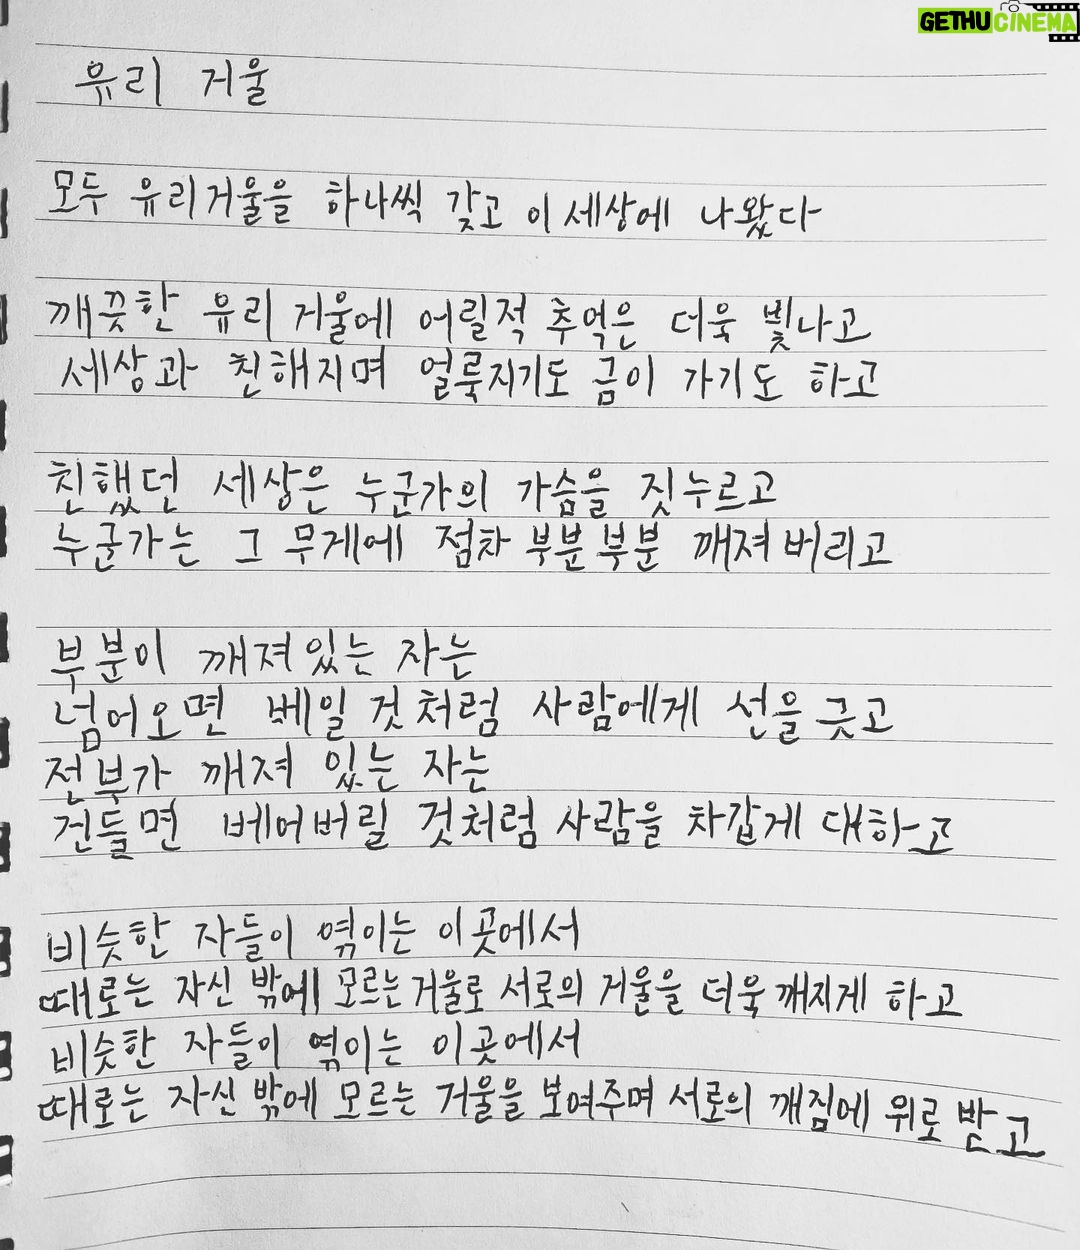 GETHUCINEMA
유리 거울
모두 유리거울을 하나씩 갖고 이 세상에 나왔다
깨끗한 유리 거울에 어릴적 추억은 더욱 빛나고
세상과 친해지며 얼룩지기도 금이 가기도 하고
친했던 세상은 누군가의 가슴을 짓누르고
누군가는 그 무게에 점차 부분부분 깨져버리고
부분이 깨져있는 자는
넘어오면 베일 것처럼 사람에게 선을 긋고
전부가 깨져 있는 자는
건들면 베어버릴 것처럼 사람을 차갑게 대하고
비슷한 자들이 엮이는 이곳에서
때로는 자신 밖에 모르는 거울로 서로의 거울을 더욱 깨지게 하고
비슷한 자들이 엮이는 이곳에서
때로는 자신 밖에 모르는 거울을 보여주며 서로의 깨짐에 위로 받고